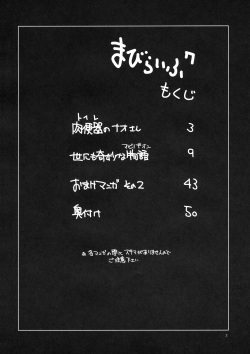 まびらいふ7
もくじ
トイレ
肉便器のナオエル 3
マビノギオン
世にも奇妙な物語 9
おまけマンガ その2 43
奥付け 50
※ 各マンガの間に、スキマがありませんので
ご注意下さい